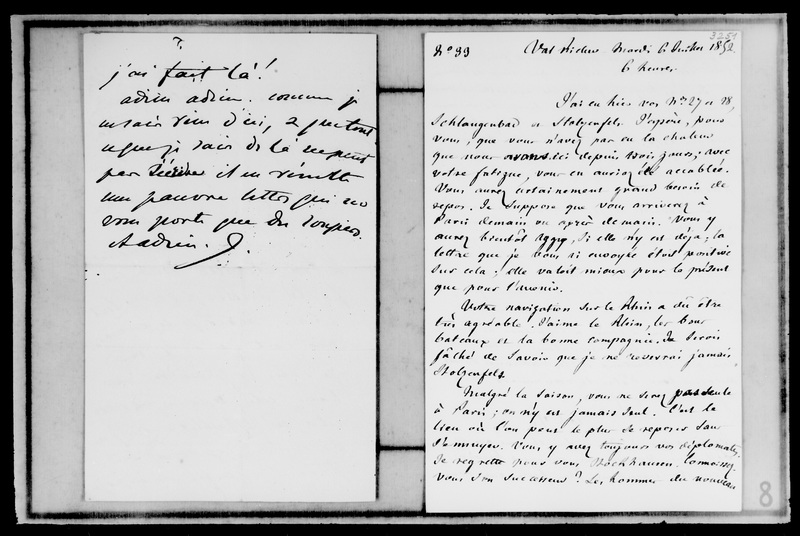 7.
j'ai fait là !
adieu adieu. comme je
ne sais rien d'ici, & que tout
ce que je sais de là ne peut
par s'écrire il en résulte
une pauvre lettre qui ne
vous porte que du
Adieu.
3251
N° 99 Val Richer Mardi 6 Juillet 1852
6 heures
J'ai eu hier vos Nos 27 et 28,
Schlangenbad et Stolzenfels. J'espère, pour
vous, que vous n'avez pas eu la chaleur
que nous avons ici depuis trois jours ; avec
votre fatigue, vous en auriez été accablée.
Vous aurez certainement grand besoin de
repos. Je suppose que vous arriverez à
Paris demain ou après demain. Vous y
aurez bientôt Aggy, si elle n'y est déjà ; la
lettre que je vous ai envoyée était positive
sur cela ; elle valoit mieux pour le présent
que pour l'avenir.
Votre navigation sur le Rhin a dû être
très agréable. J'aime le Rhin, les bons
bateaux et la bonne compagnie. Je serois
fâché de savoir que je ne reverrai jamais
Stolzenfels.
Malgré la saison, vous ne serez pas seule
à Paris ; on n'y est jamais seul. C'est le
lieu où l'on peut le plus se reposer sans
s'ennuyer. Vous y avez toujours vos diplomates.
Je regrette pour vous Stockhausen. Connoissez
vous son successeur ? Les hommes du nouveau
8